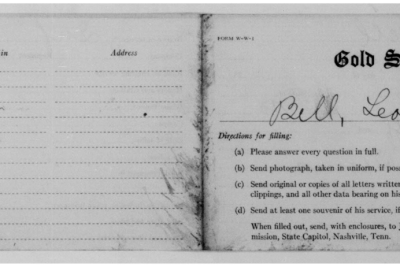 in Address
FORM W-W-1
Gold S
Bell, Leo
Directions for filling:
(a) Please answer every question in full.
(b) Send photograph, taken in uniform, if pos
(c) Send original or copies of all letters written
clippings, and all other data bearing on his
(d) Send at least one souvenir of his service, if
When filled out, send, with enclosures, to J
mission, State Capitol, Nashville, Tenn.